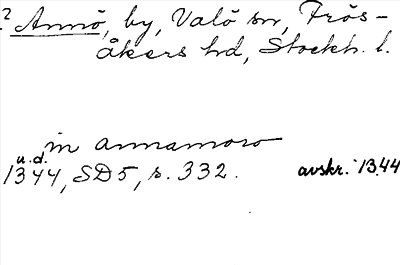 ? Annö, by, Valö sn, Frös-
åkers hd, Stockh. l.
in annamoro
u.d.
1344, SD5, s. 332. avskr. 1344